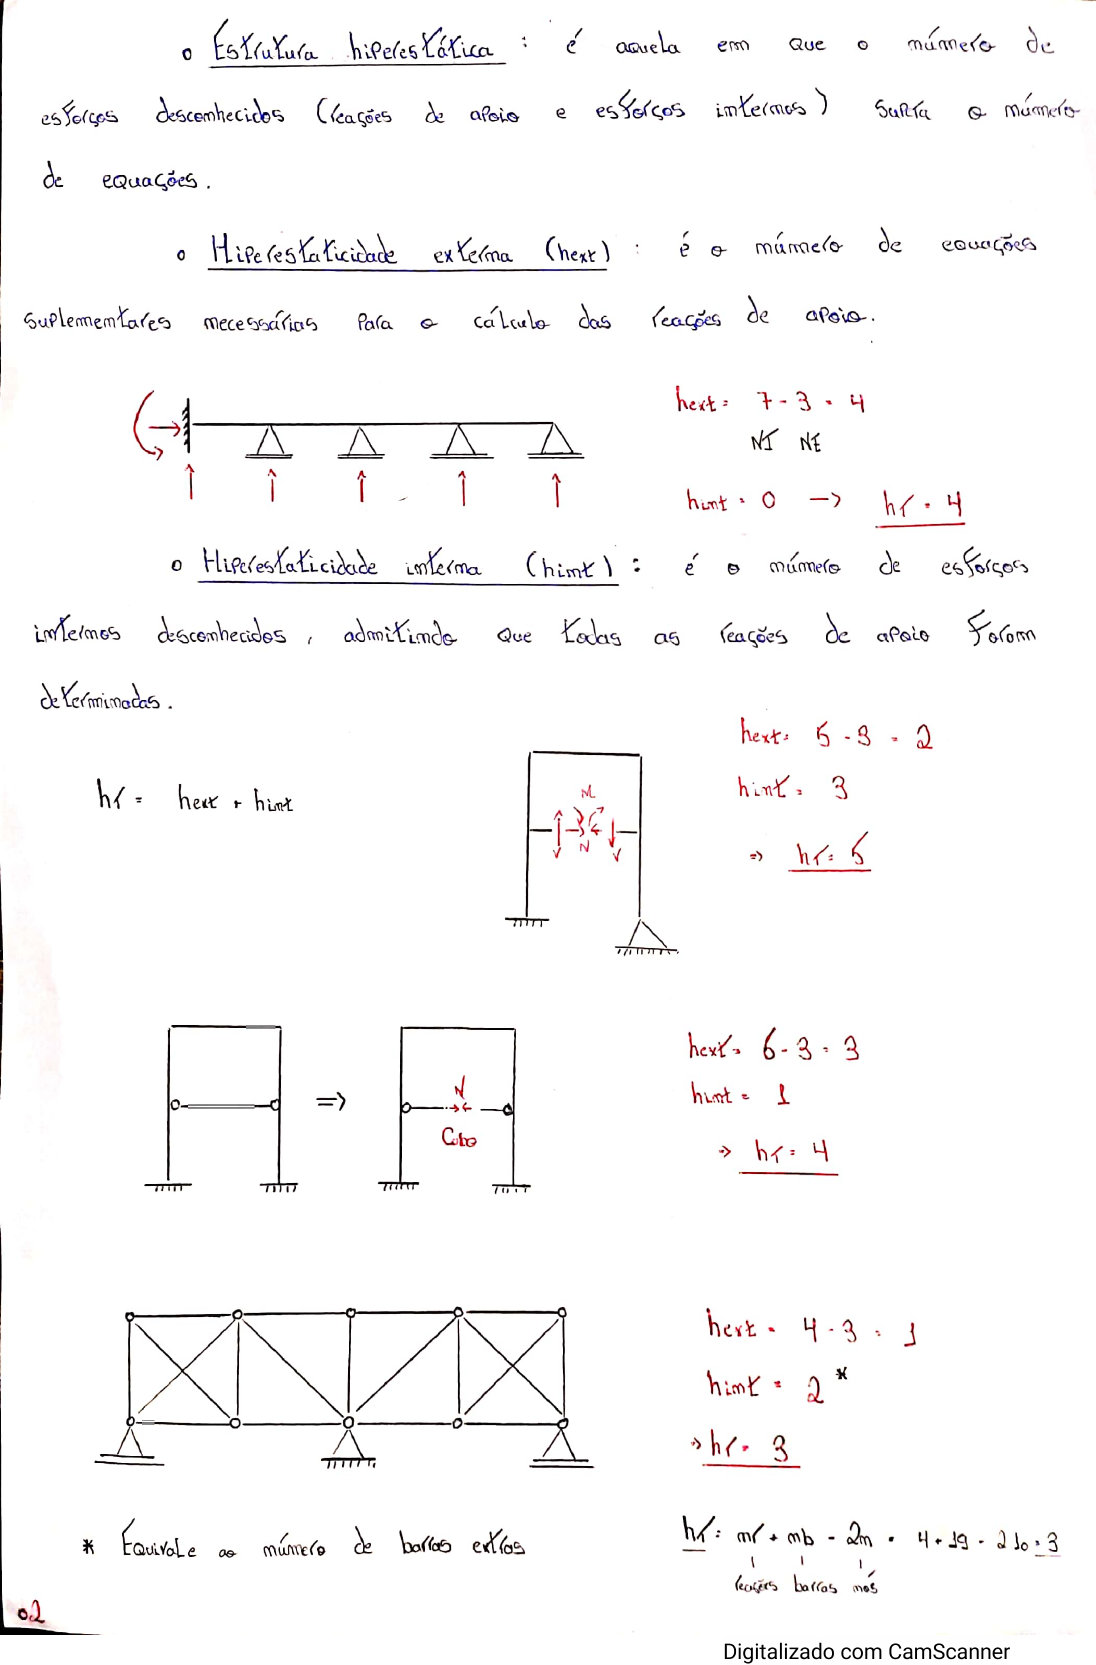 o Estrutura hiperestática : é aquela em que o número de
esforços desconhecidos (reações de apoio e esforços internos) supra o número
de equações.
o Hiperestaticidade externa (hext) : é o número de equações
suplementares necessárias para o cálculo das reações de apoio.
hext = 7 - 3 = 4
NI NE
hint = 0 → hr = 4
o Hiperestaticidade interna (hint) : é o número de esforços
internos desconhecidos, admitindo que todas as reações de apoio foram
determinadas.
hext = 5 - 3 = 2
hr = hext + hint
hint = 3
M
N
V V
⇒ hr = 5
hext = 6 - 3 = 3
N
hint = 1
⇒
Cabo
⇒ hr = 4
hext = 4 - 3 = 1
hint = 2*
⇒ hr = 3
* Equivale ao número de barras extras
hr = nr + nb - 2n = 4 + 19 - 2 10 = 3
reações barras nós
02
Digitalizado com CamScanner